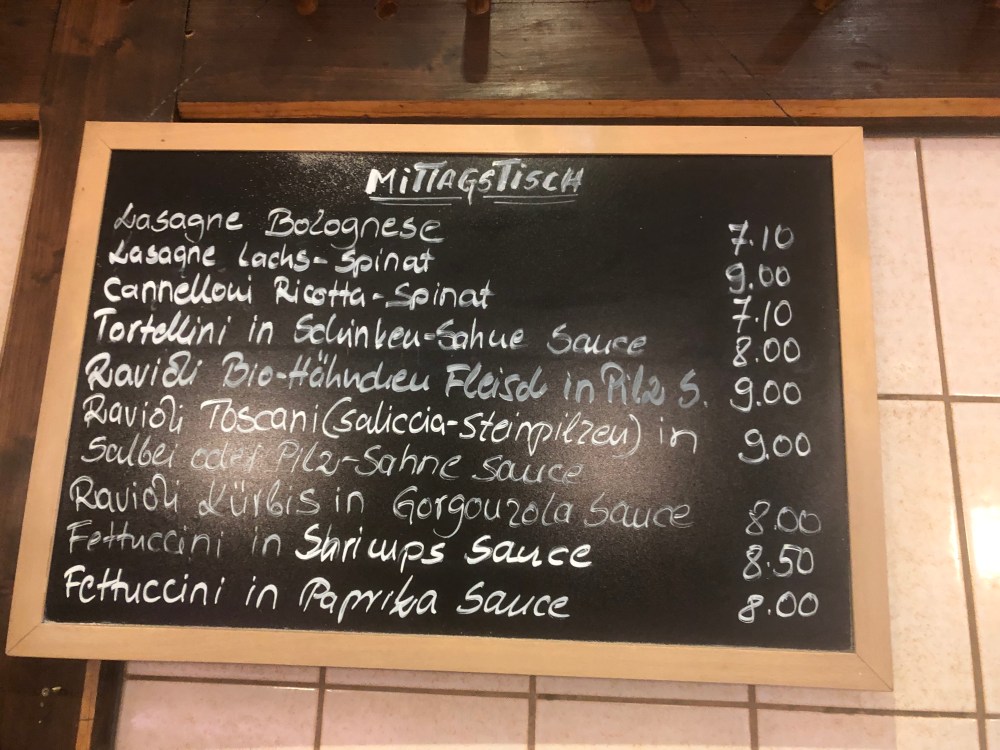 MiTTAGSTiSCH
Lasagne Bolognese 7.10
Lasagne Lachs-Spinat 9.00
Cannelloni Ricotta-Spinat 7.10
Tortellini in Schinken-Sahne Sauce 8.00
Ravioli Bio-Hähnchen Fleisch in Pilz S. 9.00
Ravioli Toscani (saliccia-Steinpilzen) in 9.00
Salbei oder Pilz-Sahne Sauce
Ravioli Kürbis in Gorgonzola Sauce 8.00
Fettuccini in Shrimps Sauce 8.50
Fettuccini in Paprika Sauce 8.00